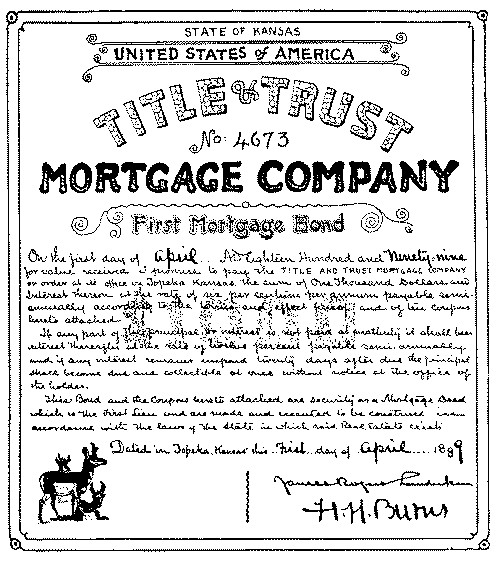 STATE OF KANSAS
UNITED STATES OF AMERICA
TITLE & TRUST
No: 4673
MORTGAGE COMPANY
First Mortgage Bond
On the first day of April AD Eighteen Hundred and Ninety-nine
for value received I promise to pay the TITLE AND TRUST MORTGAGE COMPANY
or order at its office in Topeka Kansas, the sum of One Thousand Dollars and
Interest thereon at the rate of six per centum per annum payable semi-
annually according to the and of ten coupons
hereto attached.
If any part of the principal or interest is not paid at maturity it shall bear
interest thereafter at the rate of twelve percent payable semi-annually
and if any interest remains unpaid twenty days after due the principal
shall become due and collectible at once without notice at the office of
the holder.
This Bond and the Coupons hereto attached are secured by a Mortgage Deed
which is the First Lien and are made and executed to be construed in
accordance with the laws of the State in which said Real Estate exists
Dated in Topeka, Kansas this First day of April 1889
James Rogers
H.H. Burns